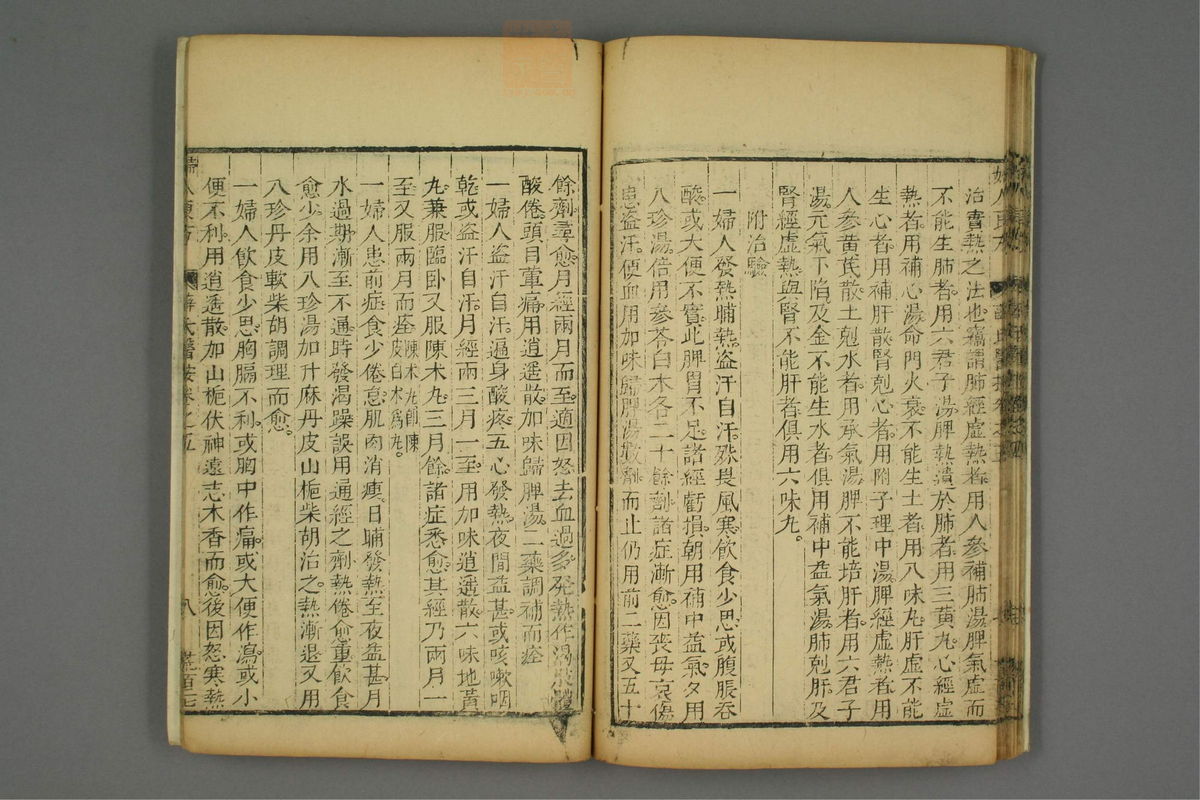 治實熱之法也竊謂肺經虛熱者用人參補肺湯脾氣虛而
不能生肺者用六君子湯脾熱遺於肺者用三黃丸心經虛
熱者用補心湯命門火衰不能生土者用八味丸肝虛不能
生心者用補肝散腎剋心者用附子理中湯脾經虛熱者用
人參黃芪散土剋水者用承氣湯脾不能培肝者用六君子
湯元氣下陷及金不能生水者俱用補中益氣湯肺剋肝及
腎經虛熱與腎不能肝者俱用六味丸。
附治驗
一婦人發熱晡熱盗汗自汗殊畏風寒飲食少思或腹脹吞
酸或大便不實此脾胃不足諸經虧損朝用補中益氣夕用
八珍湯倍用參苓白朮各二十餘劑諸症漸愈因喪母哀傷
患盗汗便血用加味歸脾湯數劑而止仍用前二藥又五十
餘劑尋愈月經兩月而至適因怒去血過多發熱作渴肢體
酸倦頭目暈痛用逍遥散加味歸脾湯二藥調補而痊
一婦人盗汗自汗遍身酸疼五心發熱夜間益甚或咳嗽咽
乾或盗汗自汗月經兩三月一至用加味逍遥散六味地黃
丸兼服臨卧又服陳朮丸三月餘諸症悉愈其經乃兩月一
至又服兩月而痊陳朮丸卽陳皮白朮爲丸。
一婦人患前症食少倦怠肌肉消瘦日晡發熱至夜益甚月
水過期漸至不通時發渴躁誤用通經之劑熱倦愈重飲食
愈少余用八珍湯加升麻丹皮山梔柴胡治之熱漸退又用
八珍丹皮軟柴胡調理而愈。
一婦人飲食少思胸膈不利或胸中作痛或大便作瀉或小
便不利用逍遥散加山梔伏神遠志木香而愈後因怒寒熱